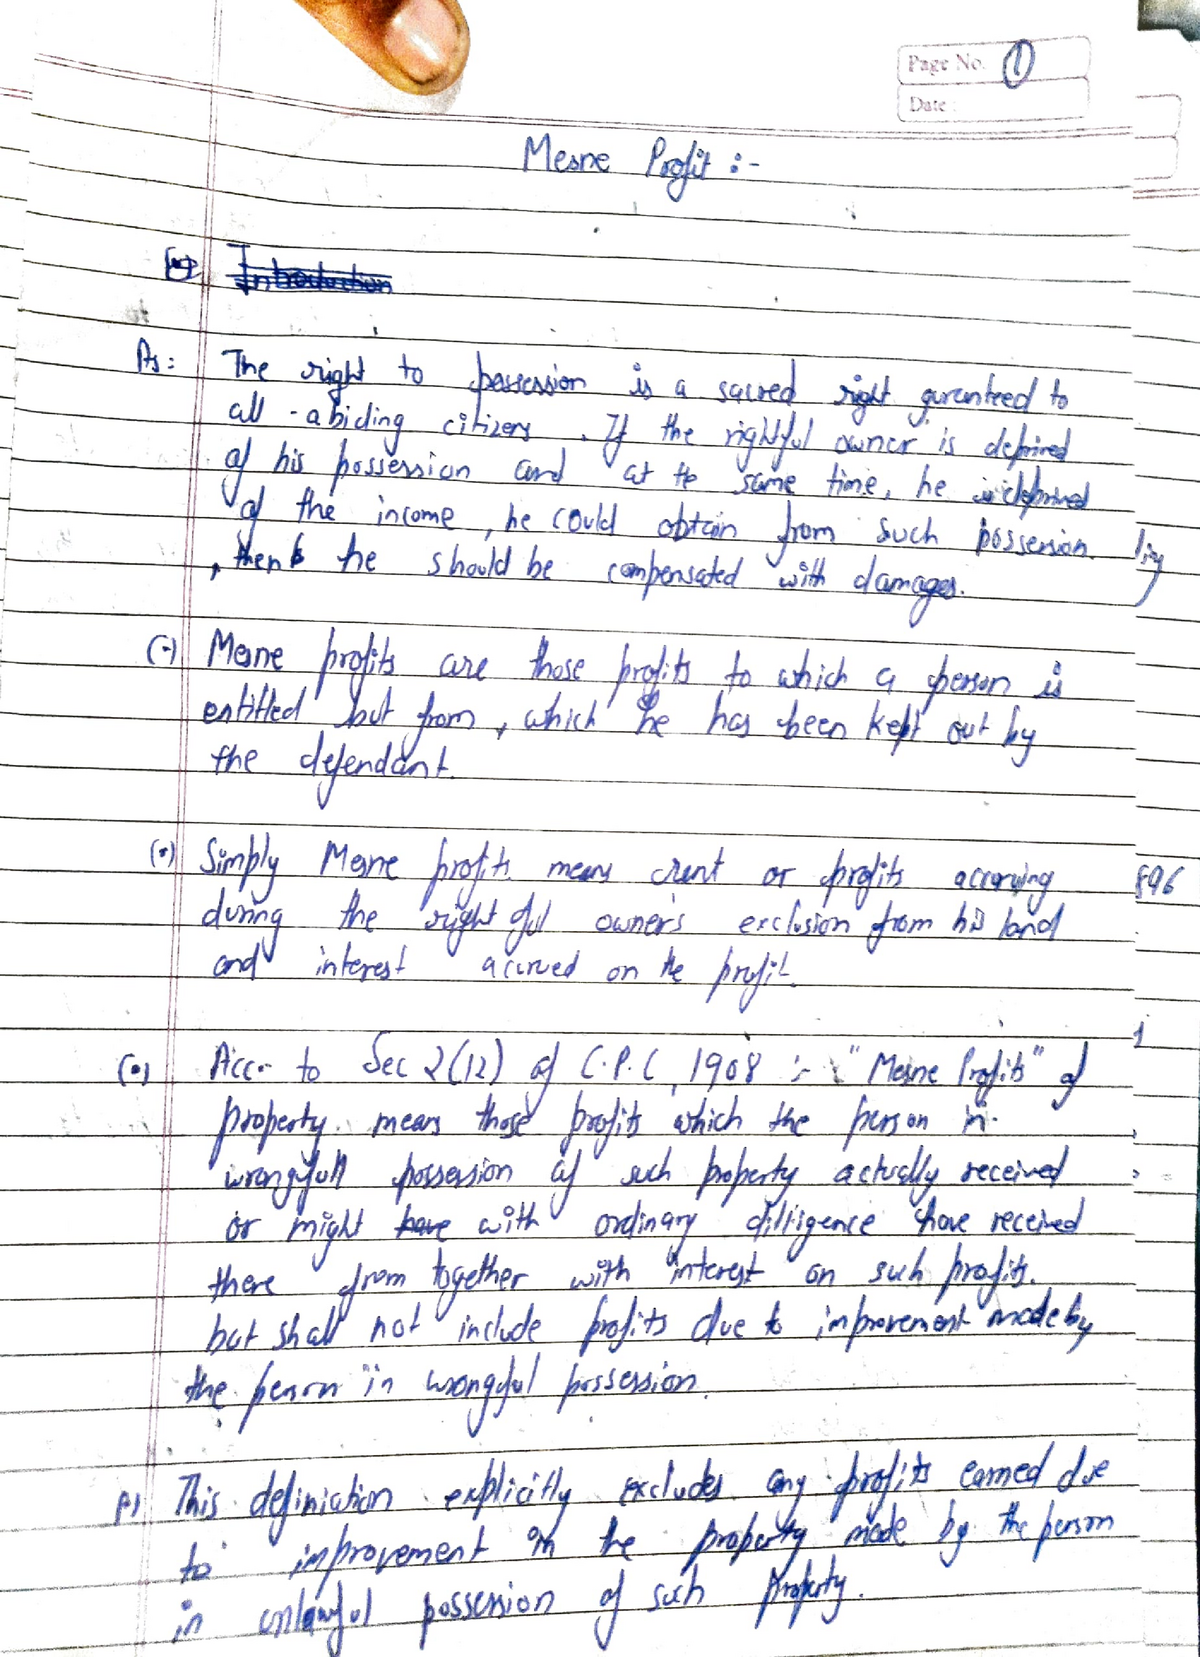 Page No. 1
Date :
Mesne Profit :-
Introduction
As: The right to possession is a sacred right guranteed to
all - abiding citizens. If the rightful owner is deprived
of his possession and at the same time, he is deprived
of the income, he could obtain from such possession.
, then he should be compensated with damages.
(•) Mesne profits are those profits to which a person is
entitled but from, which he has been kept out by
the defendant.
(•) Simply Mesne profits means rent or profits accruing
896
during the rightful owner's exclusion from his land
and interest accrued on the profit.
(•) Acc. to Sec 2(12) of C.P.C, 1908 :- "Mesne Profits" of
property means those profits which the person in
wrongfull possession of such property actually received
or might have with ordinary dilligence have received
there from together with interest on such profits.
but shall not include profits due to improvement made by
the person in wrongful possession.
This definiction explicitly excludes any profits earned due
to improvement in the property made by the person
in unlawful possession of such property.